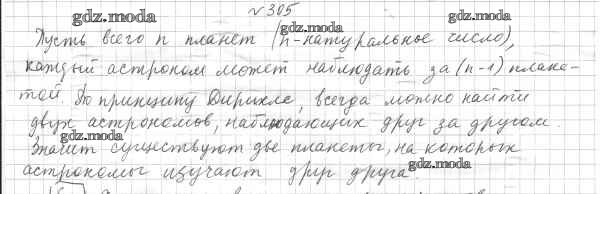 №305
gdz.moda
gdz.moda
gdz.moda
Пусть всего n планет (n-натуральное число),
каждый астроном может наблюдать за (n-1) плане-
той. По принципу Дирихле, всегда можно найти
двух астрономов, наблюдающих друг за другом.
gdz.moda
Значит существуют две планеты, на которых
gdz.moda
астрономы изучают друг друга.